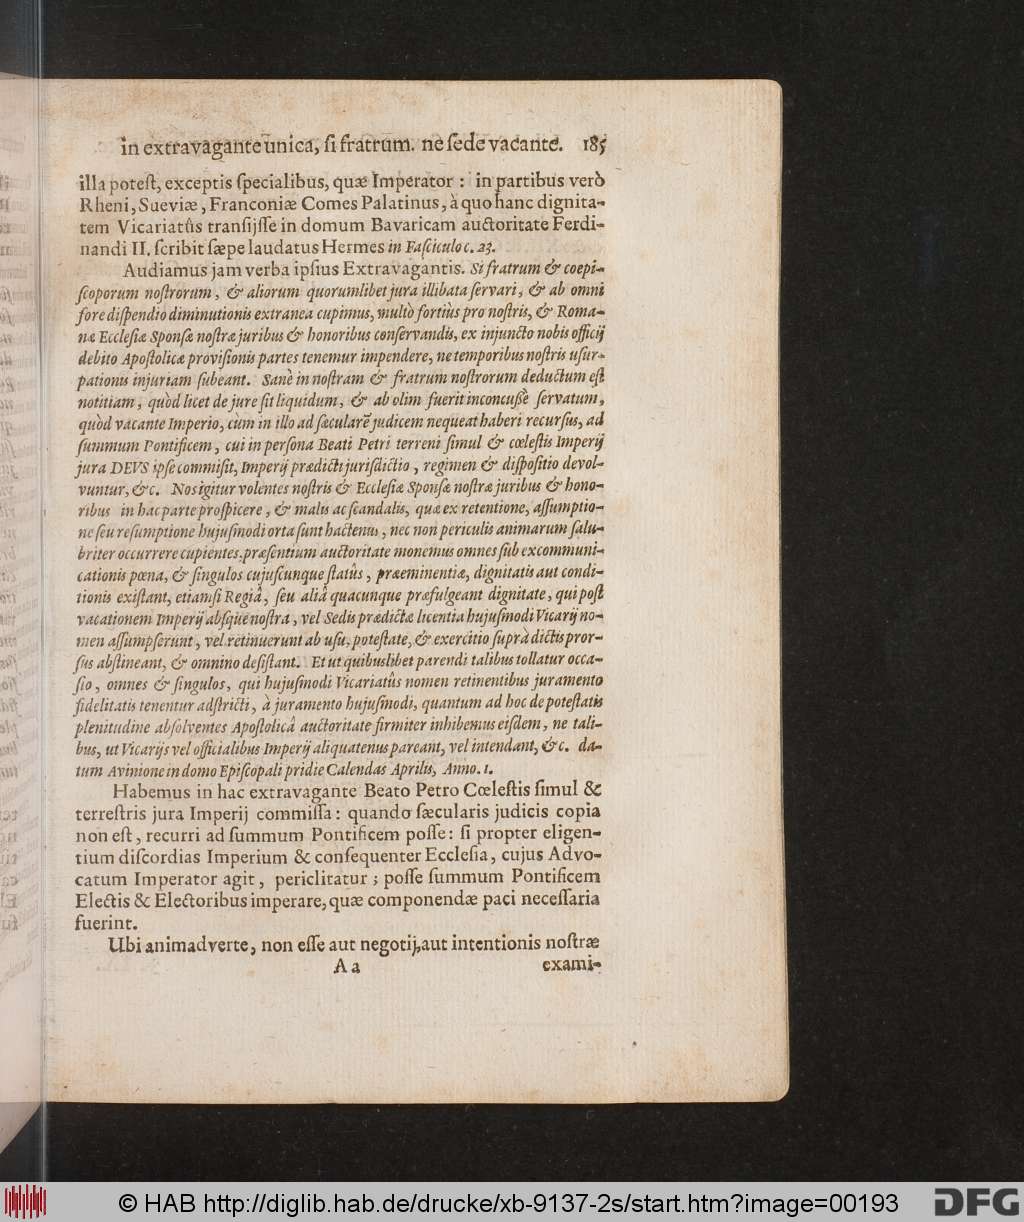 in extravagante unica, ſi fratrum. ne ſede vacante. 185
illa poteſt, exceptis ſpecialibus, quæ Imperator : in partibus verò
Rheni, Sueviæ, Franconiæ Comes Palatinus, à quo hanc dignita-
tem Vicariatûs tranſijſſe in domum Bavaricam auctoritate Ferdi-
nandi II. ſcribit ſæpe laudatus Hermes in Faſciculo c. 23.
Audiamus jam verba ipſius Extravagantis. Si fratrum & coepi-
ſcoporum noſtrorum, & aliorum quorumlibet jura illibata ſervari, & ab omni
fore diſpendio diminutionis extranea cupimus, multò fortiùs pro noſtris, & Roma-
næ Eccleſiæ Sponſæ noſtræ juribus & honoribus conſervandis, ex injuncto nobis officij
debito Apoſtolicæ proviſionis partes tenemur impendere, ne temporibus noſtris uſur-
pationis injuriam ſubeant. Sanè in noſtram & fratrum noſtrorum deductum eſt
notitiam, quòd licet de jure ſit liquidum, & ab olim fuerit inconcuſſè ſervatum,
quòd vacante Imperio, cùm in illo ad ſæcularẽ judicem nequeat haberi recurſus, ad
ſummum Pontificem, cui in perſona Beati Petri terreni ſimul & cœleſtis Imperij
jura DEVS ipſe commiſit, Imperij prædicti jurisdictio, regimen & diſpoſitio devol-
vuntur, &c. Nos igitur volentes noſtris & Eccleſiæ Sponſæ noſtræ juribus & hono-
ribus in hac parte proſpicere, & malis ac ſcandalis, quæ ex retentione, aſſumptio-
ne ſeu reſumptione hujuſmodi orta ſunt hactenus, nec non periculis animarum ſalu-
briter occurrere cupientes, præſentium auctoritate monemus omnes ſub excommuni-
cationis pœna, & ſingulos cujuſcunque ſtatûs, præeminentiæ, dignitatis aut condi-
tionis exiſtant, etiamſi Regiâ, ſeu aliâ quacunque præfulgeant dignitate, qui poſt
vacationem Imperij abſque noſtra, vel Sedis prædictæ licentia hujuſmodi Vicarij no-
men aſſumpſerunt, vel retinuerunt ab uſu, poteſtate, & exercitio ſuprà dictis pror-
ſus abſtineant, & omnino deſiſtant. Et ut quibuslibet parendi talibus tollatur occa-
ſio, omnes & ſingulos, qui hujuſmodi Vicariatûs nomen retinentibus juramento
fidelitatis tenentur adſtricti, à juramento hujuſmodi, quantum ad hoc de poteſtatis
plenitudine abſolventes Apoſtolicâ auctoritate firmiter inhibemus eiſdem, ne tali-
bus, ut Vicarijs vel officialibus Imperij aliquatenus pareant, vel intendant, &c. da-
tum Avinione in domo Epiſcopali pridie Calendas Aprilis, Anno. 1.
Habemus in hac extravagante Beato Petro Cœleſtis ſimul &
terreſtris jura Imperij commiſſa: quando ſæcularis judicis copia
non eſt, recurri ad ſummum Pontificem poſſe: ſi propter eligen-
tium diſcordias Imperium & conſequenter Eccleſia, cujus Advo-
catum Imperator agit, periclitatur; poſſe ſummum Pontificem
Electis & Electoribus imperare, quæ componendæ paci neceſſaria
fuerint.
Ubi animadverte, non eſſe aut negotij, aut intentionis noſtræ
A a exami-
© HAB http://diglib.hab.de/drucke/xb-9137-2s/start.htm?image=00193
DFG